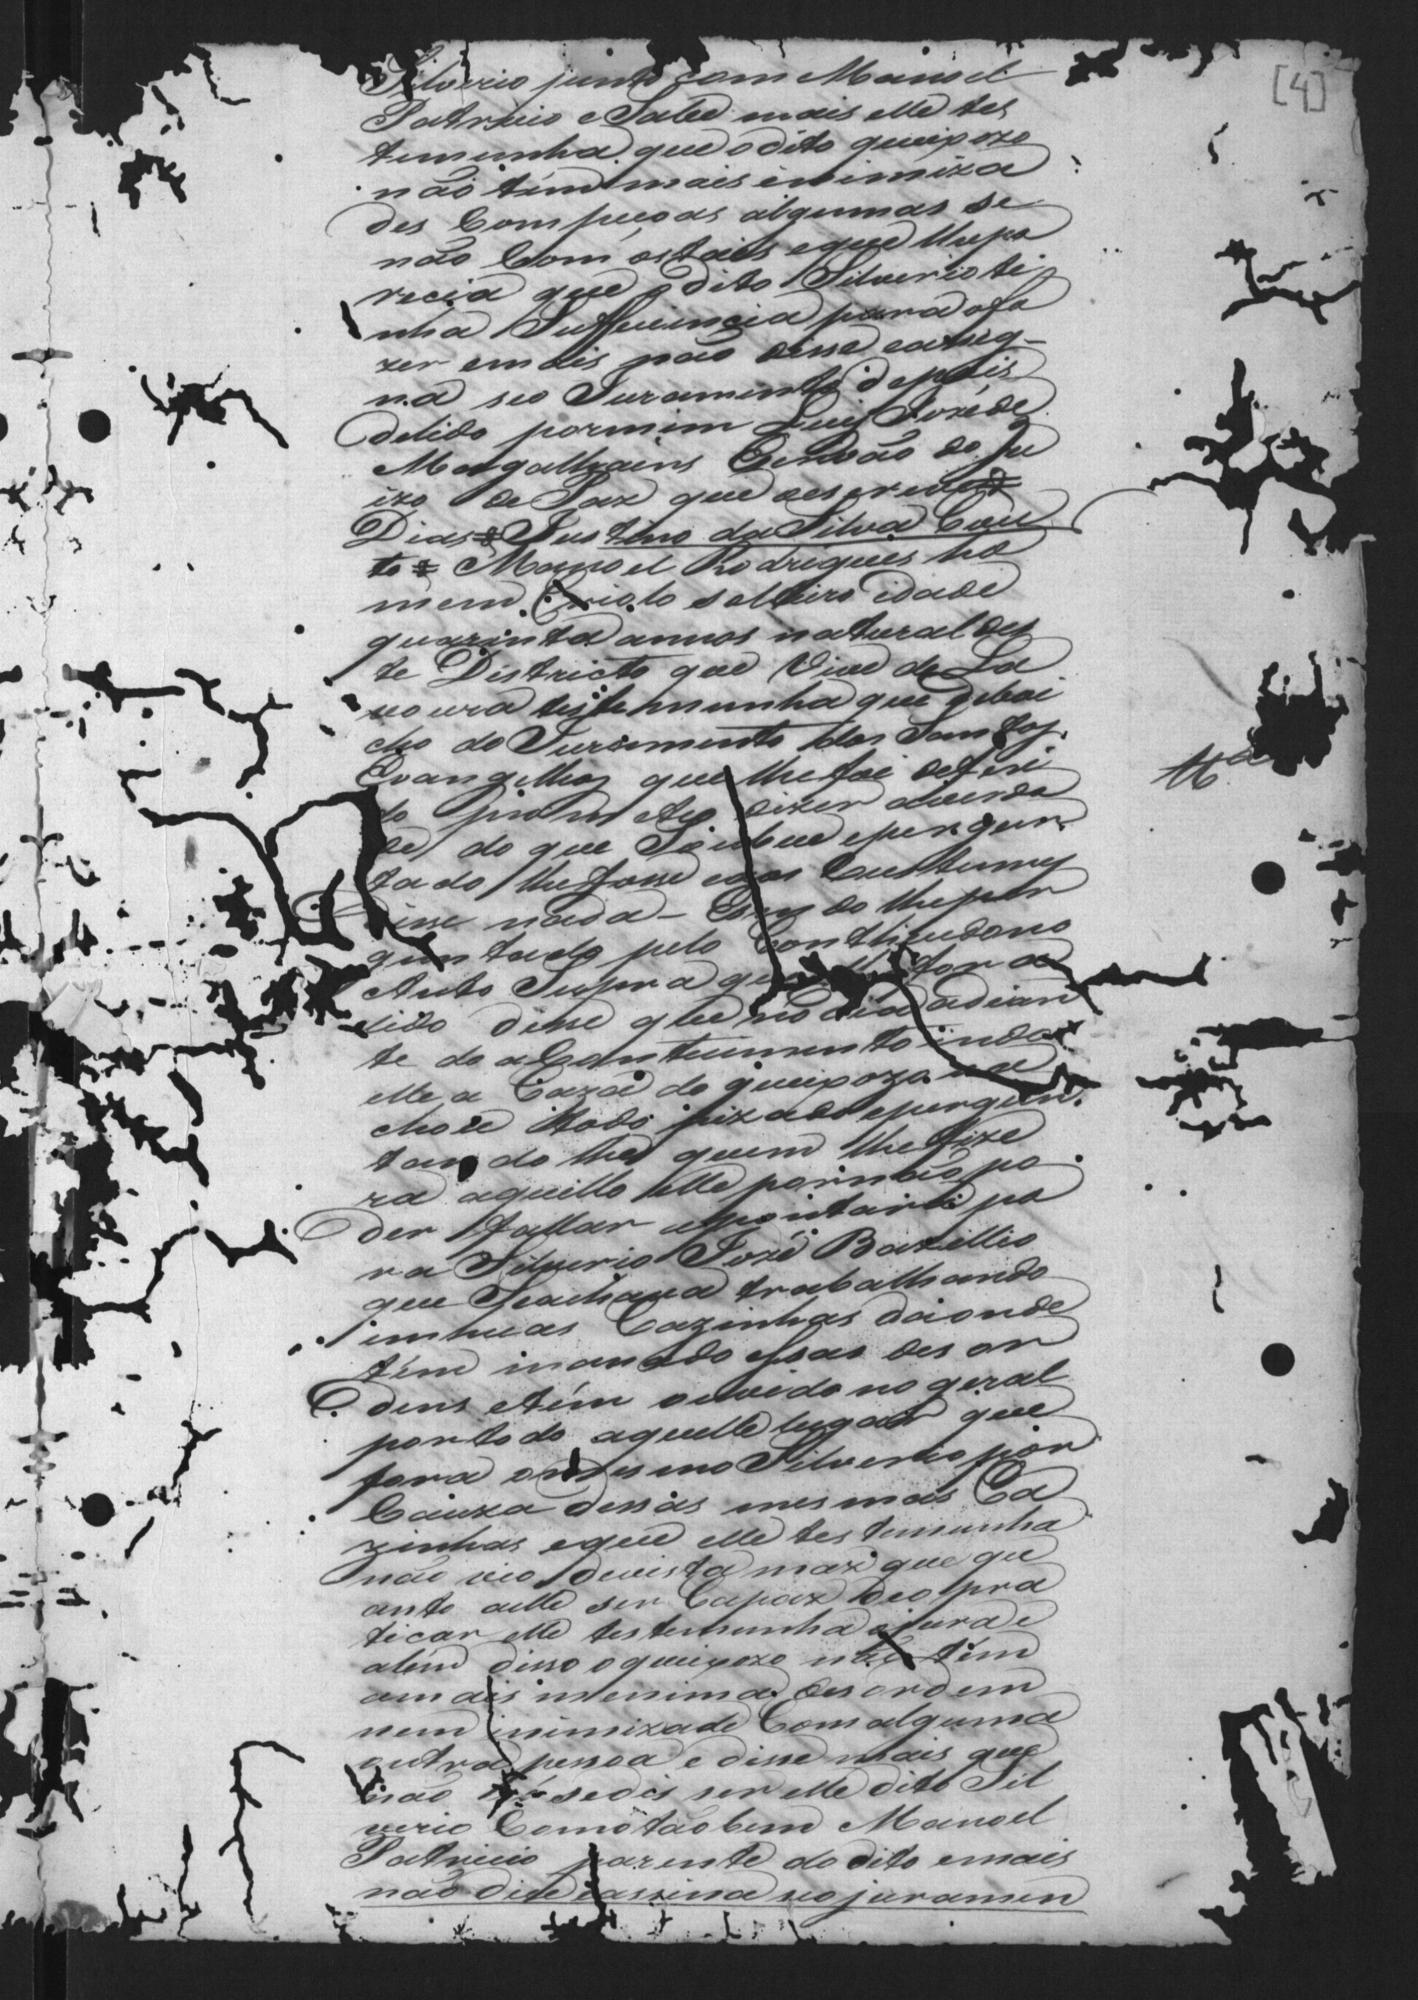 [4]
Silverio junto com Manoel
Patricio e Sabe mais elle tes
temunha que o dito queixozo
não tem mais inimiza
des Com pecoas algumas se
não Com os tais e que lhe pa
recia que o dito Silverio ti
nha Sufficiencia para o fa
zer e mais não disse e asig-
na seo Juramento depois
de lido por mim Luis Jozé de
Magalhains Escrivão do Ju
izo de Paz que o escrevi
Dias Justino da Silva Cou
to Manoel Rodrigues ho
mem Criolo solteiro idade
quarenta annos natural des
te Districto que Vive de La
voura testemunha que debai
cho do Juramento dos Santos
Evangelhos que lhe foi deferi
do prometeo dizer a verda
de do que Soubece e pergun
tado lhe fosse e aos Custumes
disse nada - E sendo lhe per
guntado pelo Conthiudo no
Auto Supra que lhe fora
lido disse que no dia adian
te do aContecimento indo
elle a Caza do queixozo o a
chou todo pizado e pergun
tando lhe quem lhe fize
ra aquillo elle por não po
der fallar apontara pa
ra Silverio Jozé Bazillio
que Se achava trabalhando
em huas Cazinhas daonde
tem manado essas desor
dens e tem ouvido no geral
por todo aquelle lugar que
fora o mesmo Silverio por
Cauza dessas mesmas Ca
zinhas e que elle testemunha
não vio de vista maz que qu
anto a elle ser Capaz de o pra
ticar elle testemunha o jura e
alem disso o queixozo não tem
a mais menima desordem
nem inimizade Com alguma
outra pessoa e disse mais que
não só sedis ser elle dito Sil
verio Como tãobem Manoel
Patricio parente do dito e mais
não disse e assina seo juramen